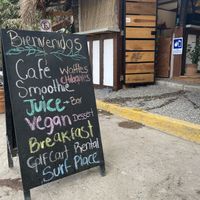 Bienvenidos
Cafe Waffles
Chilaquiles
Smoothie
Juice Bar
Vegan Dessert
Breakfast
Golf Cart Rental
Surf Place